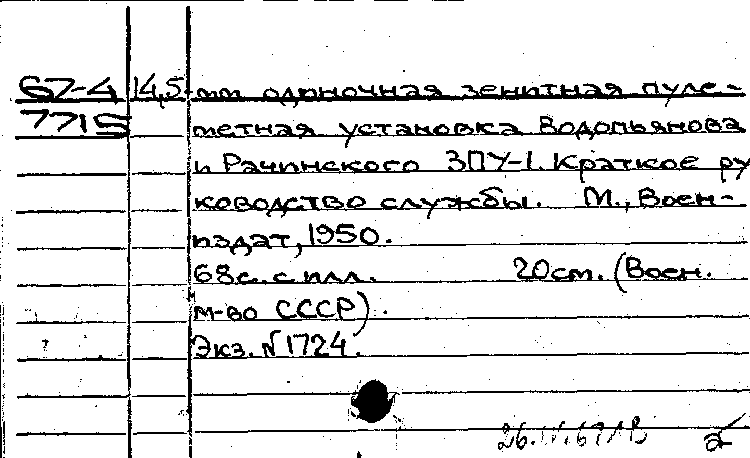 67-4 14,5-мм одиночная зенитная пуле-
7715 метная установка Водопьянова
и Рачинского ЗПУ-1. Краткое ру
ководство службы. М., Воен-
издат, 1950.
68с. с илл. 20см. (Воен.
м-во СССР).
Экз. №1724.